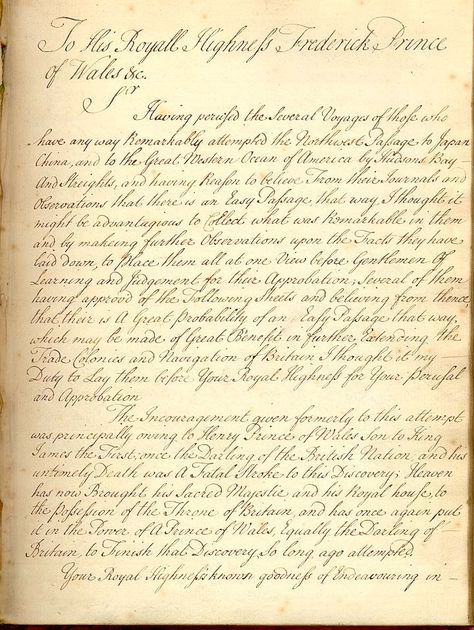 To His Royall Highness Frederick Prince
of Wales &c.
Sr
Having perused the Several Voyages of those who
have any way Remarkably attempted the Northwest Passage to Japan
China, and to the Great Western Ocean of America by Hudsons Bay
And Streights, and having Reason to believe From their Journals and
Observations that there is an Easy Passage, that way I thought it
might be advantagious to Collect what was Remarkable in them
and by makeing further Observations upon the Facts they have
laid down, to place them all at one View before Gentlemen of
Learning and Judgement for their Approbation; Several of them
having approvd of the Following Sheets and believing from thence
that their is A Great Probability of an Easy Passage that way,
which may be made of Great Benefit in further Extending the
Trade Colonies and Navigation of Britain I thought it my
Duty to Lay them before Your Royal Highness for Your Perusal
and Approbation
The Incouragement given formerly to this attempt
was principally owing to Henry Prince of Wales Son to King
James the First, once the Darling of the British Nation, and his
untimely Death was A Fatal Stroke to this Discovery; Heaven
has now Brought his Sacred Majestie and his Royal house, to
the possession of the Throne of Britain, and has once again put
it in the Power of A Prince of Wales, Equally the Darling of
Britain, to Finish that Discovery so long ago attempted
Your Royal Highness's known goodness of Endeavouring in-